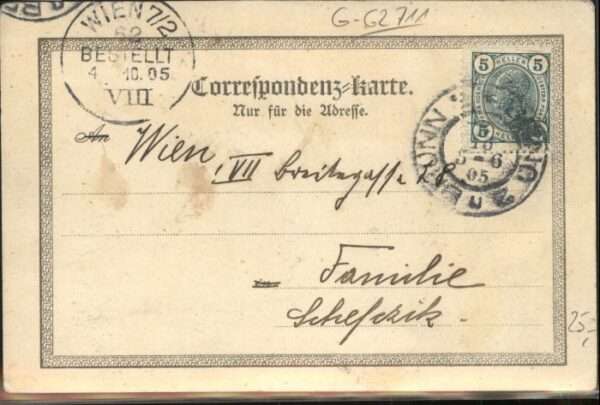 G-G2711
WIEN 7/2
62
BESTELLT
4. 10. 05
VIII
5 HELLER 5
5 5
Correspondenz-Karte.
Nur für die Adresse.
An Wien, VII Breitegasse 7/8
BRÜNN
5-6
05
Familie
Schefczik.
25,-